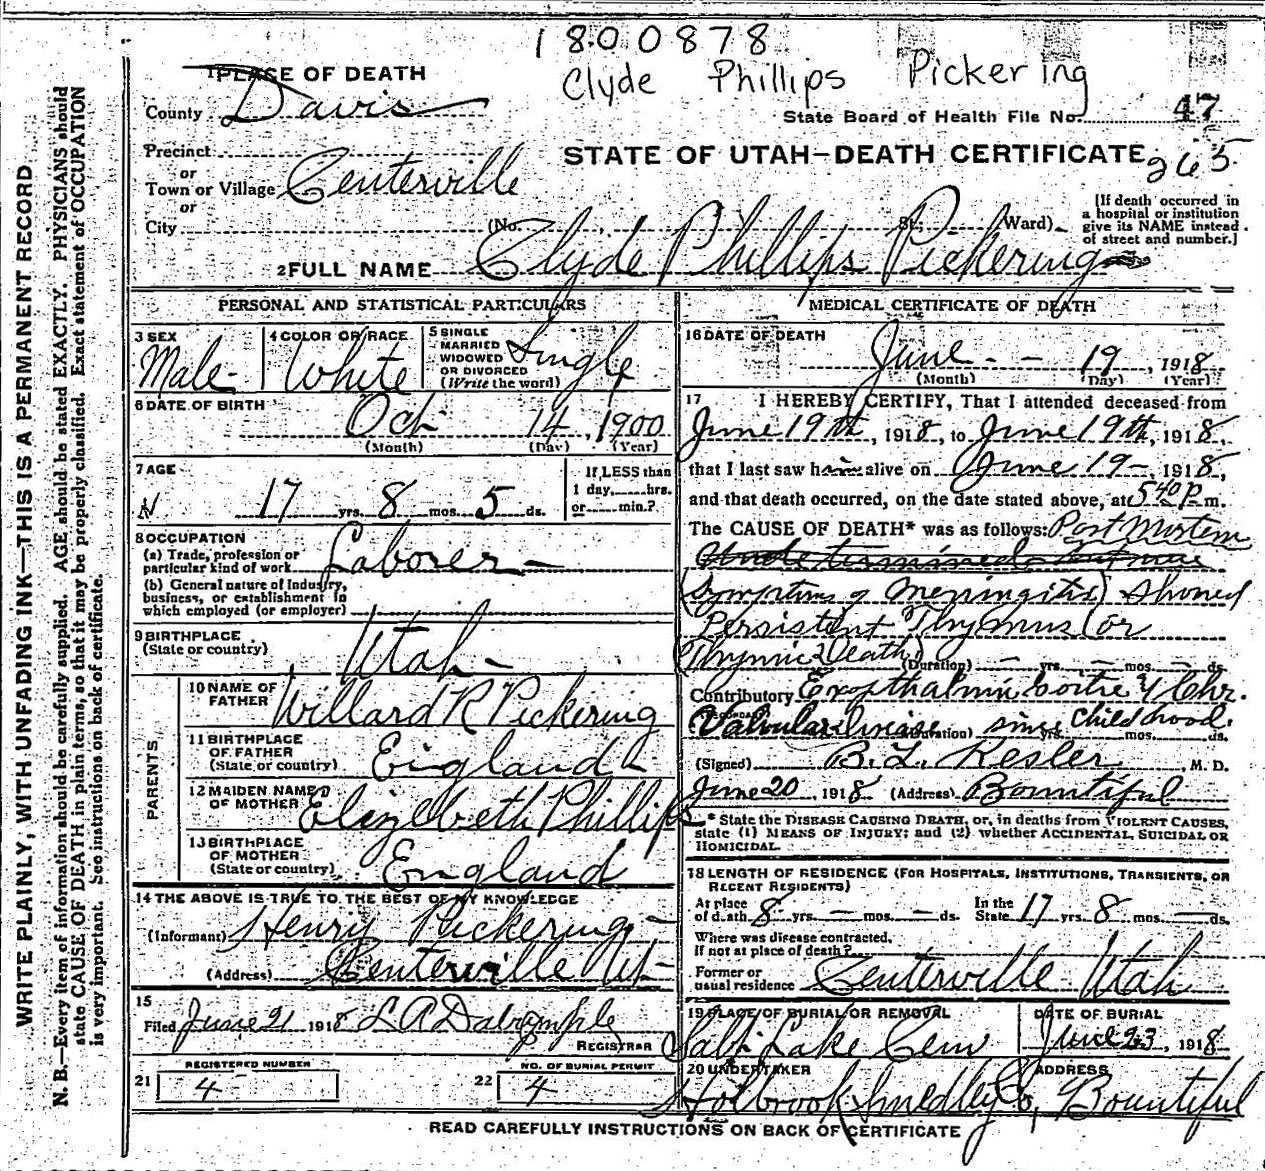 1800878
Clyde Phillips Pickering
1 PLACE OF DEATH
County Davis
State Board of Health File No. 47
Precinct
STATE OF UTAH—DEATH CERTIFICATE 265
or
Town or Village Centerville
or
City (No. St.; Ward)
[If death occurred in
a hospital or institution
give its NAME instead
of street and number.]
2 FULL NAME Clyde Phillips Pickering
PERSONAL AND STATISTICAL PARTICULARS
3 SEX Male
4 COLOR OR RACE White
5 SINGLE
MARRIED
WIDOWED
OR DIVORCED
(Write the word) Single
6 DATE OF BIRTH
Oct 14, 1900
(Month) (Day) (Year)
7 AGE
17 yrs. 8 mos. 5 ds.
If LESS than
1 day, hrs.
or min.?
8 OCCUPATION
(a) Trade, profession or
particular kind of work Laborer
(b) General nature of Industry,
business, or establishment in
which employed (or employer)
9 BIRTHPLACE
(State or country) Utah
PARENTS
10 NAME OF
FATHER Willard R Pickering
11 BIRTHPLACE
OF FATHER
(State or country) England
12 MAIDEN NAME
OF MOTHER Elizebeth Phillips
13 BIRTHPLACE
OF MOTHER
(State or country) England
14 THE ABOVE IS TRUE TO THE BEST OF MY KNOWLEDGE
(Informant) Henry Pickering
(Address) Centerville Ut
15
Filed June 21 1918 L A Dalrymple
REGISTRAR
REGISTERED NUMBER
21 4
NO. OF BURIAL PERMIT
22 4
MEDICAL CERTIFICATE OF DEATH
16 DATE OF DEATH
June 19, 1918
(Month) (Day) (Year)
17 I HEREBY CERTIFY, That I attended deceased from
June 19th, 1918, to June 19th, 1918,
that I last saw him alive on June 19, 1918,
and that death occurred, on the date stated above, at 5 40 P m.
The CAUSE OF DEATH* was as follows: Post Mortem
(Symptoms of Meningitis) showed
Persistent Thymus (or
Thymic Death) (Duration) yrs. mos. ds.
Contributory Exopthalmic Goitre & Chr.
Valvular disease (Duration) since childhood. yrs. mos. ds.
(Signed) B. L. Kesler, M. D.
June 20, 1918 (Address) Bountiful
* State the DISEASE CAUSING DEATH, or, in deaths from VIOLENT CAUSES,
state (1) MEANS OF INJURY; and (2) whether ACCIDENTAL, SUICIDAL OR
HOMICIDAL.
18 LENGTH OF RESIDENCE (FOR HOSPITALS, INSTITUTIONS, TRANSIENTS, OR
RECENT RESIDENTS)
At place
of death 8 yrs. — mos. — ds.
In the
State 17 yrs. 8 mos. — ds.
Where was disease contracted,
If not at place of death?
Former or
usual residence Centerville Utah
19 PLACE OF BURIAL OR REMOVAL
Salt Lake Cem
DATE OF BURIAL
June 23, 1918
20 UNDERTAKER
Holbrook Smedley Co,
ADDRESS
Bountiful
READ CAREFULLY INSTRUCTIONS ON BACK OF CERTIFICATE
WRITE PLAINLY, WITH UNFADING INK—THIS IS A PERMANENT RECORD
N. B.—Every item of information should be carefully supplied. AGE should be stated EXACTLY. PHYSICIANS should
state CAUSE OF DEATH in plain terms, so that it may be properly classified. Exact statement of OCCUPATION
is very important. See instructions on back of certificate.